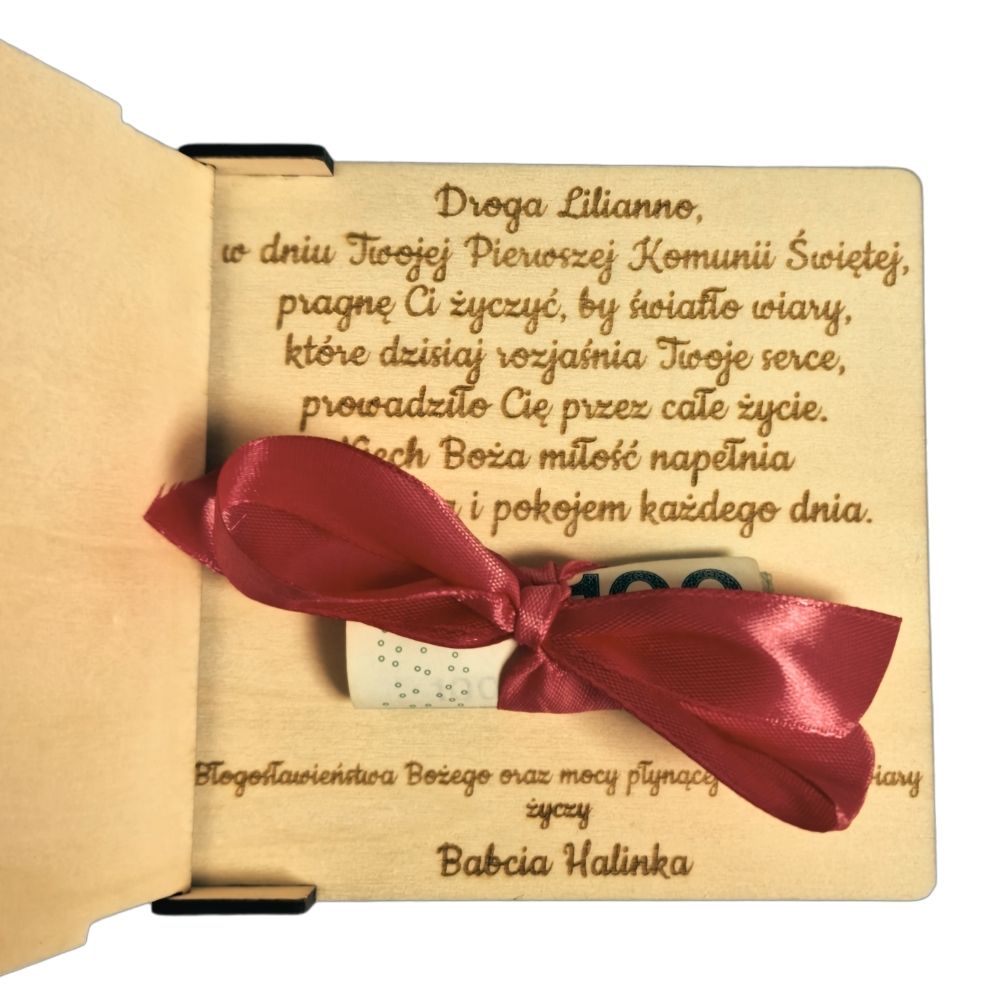 Droga Lilianno,
w dniu Twojej Pierwszej Komunii Świętej,
pragnę Ci życzyć, by światło wiary,
które dzisiaj rozjaśnia Twoje serce,
prowadziło Cię przez całe życie.
Niech Boża miłość napełnia
i pokojem każdego dnia.
100
Błogosławieństwa Bożego oraz mocy płynącej
życzy
Babcia Halinka